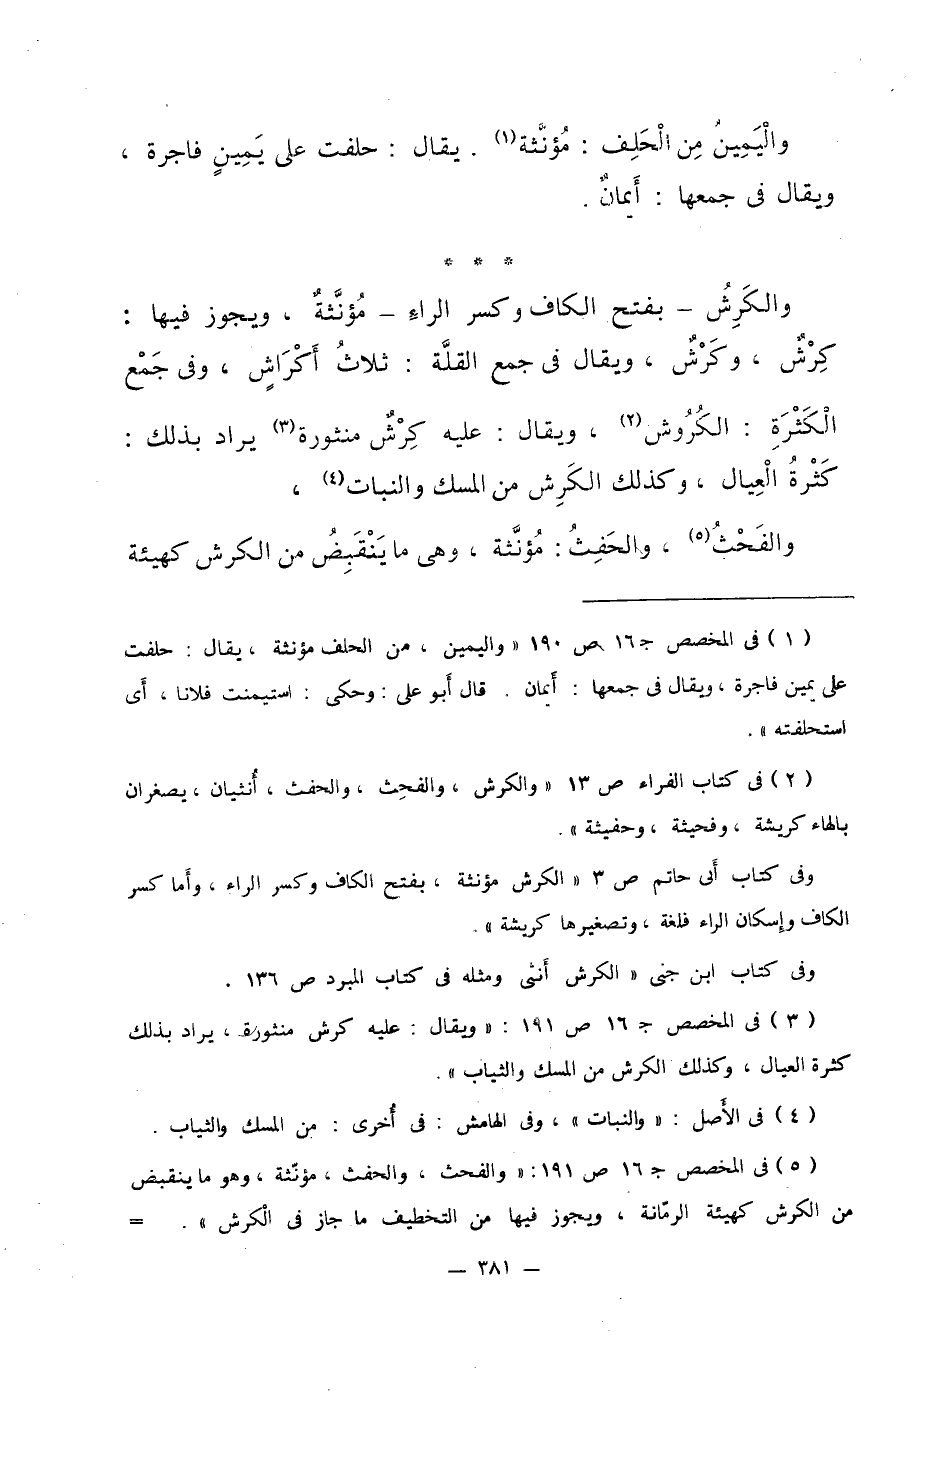 والْيَمِينُ مِن الْحَلِف : مُؤنَّثة(١) . يقال : حلفت على يَمِينٍ فاجرة ،
ويقال فى جمعها : أَيمانٌ .
* * *
والكَرِشُ – بفتح الكاف وكسر الراءِ – مُؤنَّثةٌ ، ويجوز فيها :
كِرْشٌ ، وكَرْشٌ ، ويقال فى جمع القلَّة : ثلاثُ أَكْرَاشٍ ، وفى جَمْع
الْكَثْرَةِ : الكُرُوش(٢) ، ويقال : عليه كِرْشٌ منثورة(٣) يراد بذلك :
كَثْرةُ الْعِيال ، وكذلك الكَرِش من المسك والنبات(٤) ،
والفَحْثُ(٥) ، والحَفِثُ : مُؤنَّثة ، وهى ما يَنْقَبِضُ من الكرش كهيئة
( ١ ) فى المخصص جـ ١٦ ص ١٩٠ « واليمين ، من الحلف مؤنثة ، يقال : حلفت
على يمين فاجرة ، ويقال فى جمعها : أَيمان . قال أبو على : وحكى : استيمنت فلانا ، أى
استحلفته » .
( ٢ ) فى كتاب الفراء ص ١٣ « والكرش ، والفحِث ، والحفث ، أُنثيان ، يصغران
بالهاء كريشة ، وفحيثة ، وحفيثة » .
وفى كتاب أبى حاتم ص ٣ « الكرش مؤنثة ، بفتح الكاف وكسر الراء ، وأما كسر
الكاف وإسكان الراء فلغة ، وتصغيرها كريشة » .
وفى كتاب ابن جنى « الكرش أنثى ومثله فى كتاب المبرد ص ١٣٦ .
( ٣ ) فى المخصص جـ ١٦ ص ١٩١ : « ويقال : عليه كرش منثورة ، يراد بذلك
كثرة العيال ، وكذلك الكرش من المسك والثياب » .
( ٤ ) فى الأَصل : « والنبات » ، وفى الهامش : فى أُخرى : من المسك والثياب .
( ٥ ) فى المخصص جـ ١٦ ص ١٩١ : « والفحث ، والحفث ، مؤنّثة ، وهو ما ينقبض
من الكرش كهيئة الرمّانة ، ويجوز فيها من التخطيف ما جاز فى الْكرش » . =
— ٣٨١ —